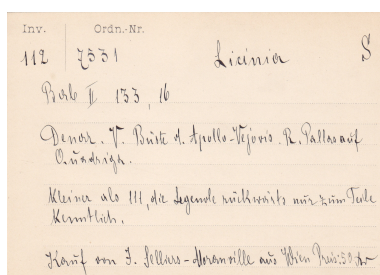 Inv. Ordn.-Nr.
112 7531 Licinia S
Bab II 133, 16
Denar. V. Büste d. Apollo-Vejovis. R. Pallas auf
Quadriga.
Kleiner als 111, die Legende rückwärts nur zum Teile
kenntlich.
Kauf von J. Selliers-Moranville aus Wien Preis: